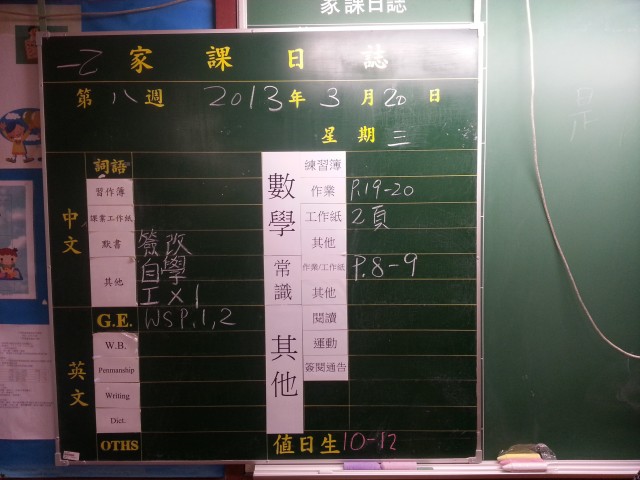 家課日誌
一乙 家課日誌
第八週 2013年3月20日
星期三
中文
詞語
習作簿
課業工作紙
默書 簽改
其他 自學
工×1
英文
G.E. WS P.1,2
W.B.
Penmanship
Writing
Dict.
OTHS
數學
練習簿
作業 P.19-20
工作紙 2頁
其他
常識
作業/工作紙 P.8-9
其他
其他
閱讀
運動
簽閱通告
值日生 10-12